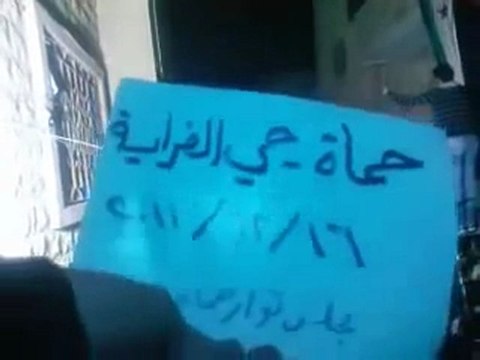 حماة - حي الفراية
١٦/١٢/٢٠١١
مجلس ثوار حماة